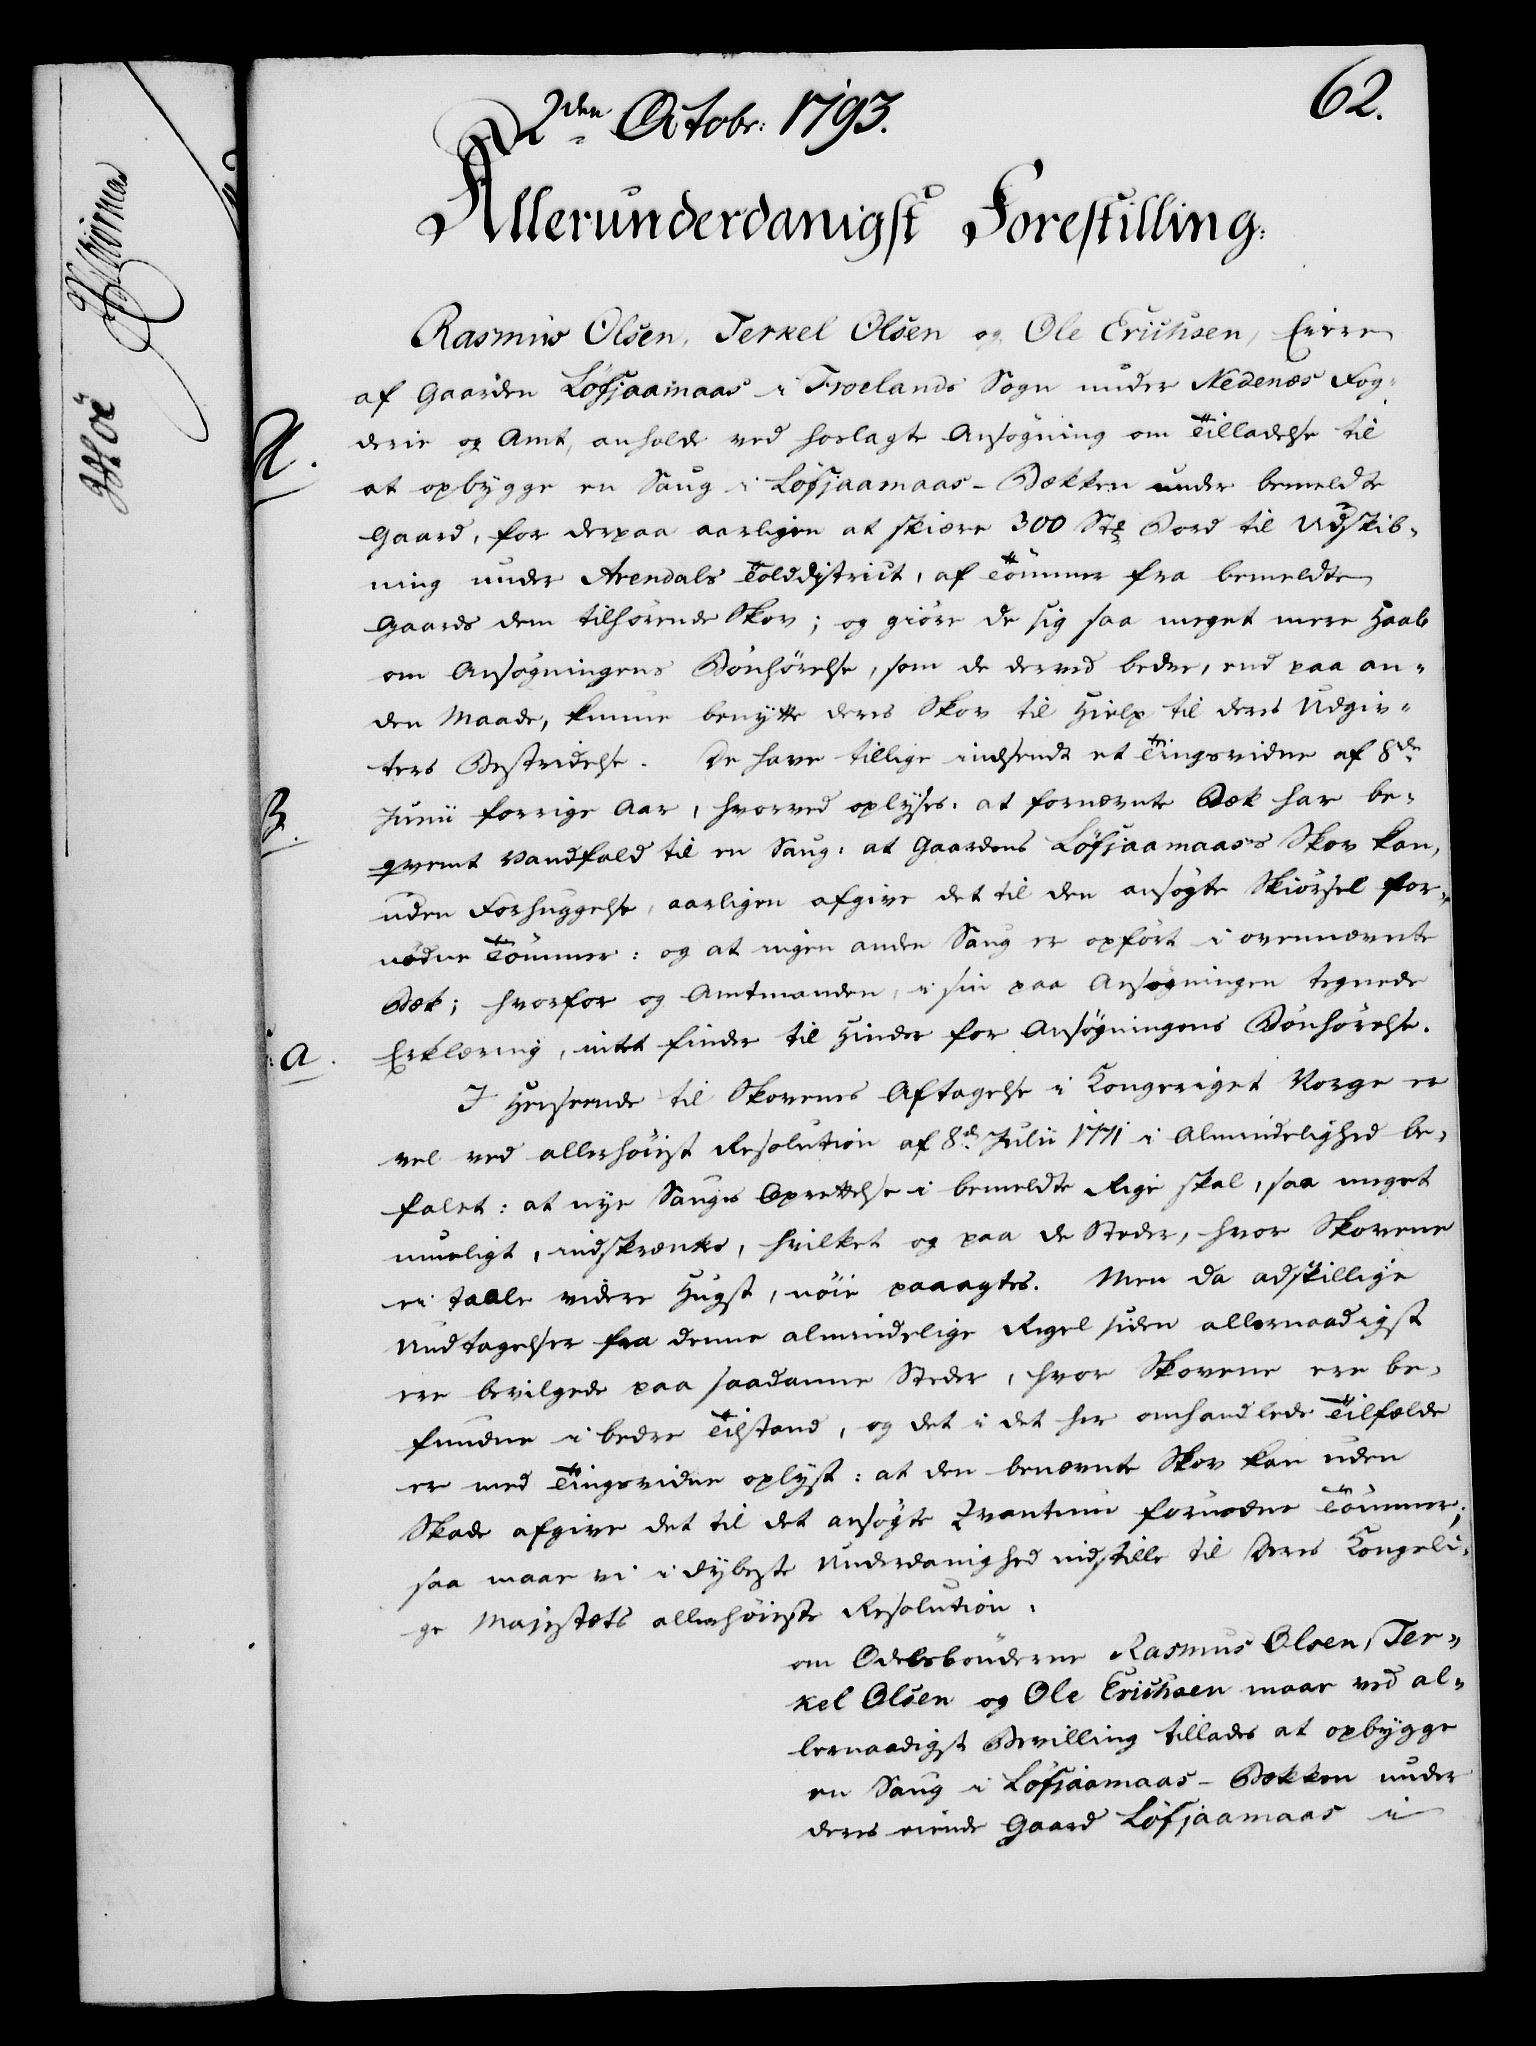 62.
2den Octobr: 1793.
Allerunderdanigst Forestilling.
Rasmus Olsen, Terkel Olsen og Ole Erichsen, Eiere
af Gaarden Løfjaamaas i Froelands Sogn under Nedenæs Fog-
A.
derie og Amt, anholde ved hoslagte Ansøgning om Tilladelse til
at opbygge en Saug i Løfjaamaas-Bækken under bemeldte
Gaard, for derpaa aarligen at skiære 300 Stk Bord til Udskib-
ning under Arendals Tolddistrict, af Tømmer fra bemeldte
Gaards dem tilhørende Skov; og giøre de sig saa meget mere Haab
om Ansøgningens Bønhørelse, som de derved bedre, end paa an-
den Maade, kunne benytte deres Skov til Hielp til deres Udgiv-
ters Bestridelse. De have tillige indsendt et Tingsvidne af 8de
B.
Junii forrige Aar, hvorved oplyses: at fornævnte Bæk har be-
qvemt Vandfald til en Saug: at Gaardens Løfjaamaas's Skov kan,
uden Forhuggelse, aarligen afgive det til den ansøgte Skiørsel for-
nødne Tømmer: og at ingen anden Saug er opført i ovennævnte
Bæk; hvorfor og Amtmanden, i sin paa Ansøgningen tegnede
a.
Erklæring, intet finder til Hinder for Ansøgningens Bønhørelse.
I Henseende til Skovenes Aftagelse i Kongeriget Norge er
vel ved allerhøiest Resolution af 8d Julii 1771 i Almindelighed be-
falet: at nye Sauges Oprettelse i bemeldte Rige skal, saa meget
mueligt, indskrænkes, hvilket og paa de Steder, hvor Skovene
ei taale videre Hugst, nøie paaagtes. Men da adskillige
Undtagelser fra denne almindelige Regel siden allernaadigst
ere bevilgede paa saadanne Steder, hvor Skovene ere be-
fundne i bedre Tilstand, og det i det her omhandlede Tilfælde
er med Tingsvidne oplyst: at den benævnte Skov kan uden
Skade afgive det til det ansøgte Qvantum fornødne Tømmer;
saa maae vi i dybeste Underdanighed indstille til Deres Kongeli-
ge Majestæts allerhøieste Resolution,
om Odelsbønderne Rasmus Olsen, Ter-
kel Olsen og Ole Erichsen maae ved al-
lernaadigst Bevilling tillades at opbygge
en Saug i Løfjaamaas-Bækken under
deres eiende Gaard Løfjaamaas i